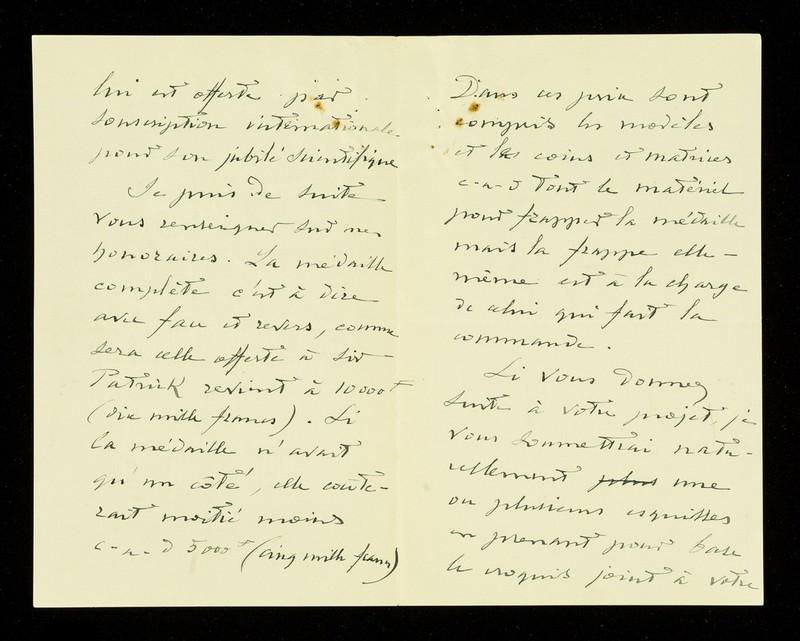 lui est offerte par
souscription internationale
pour son jubilé scientifique
Je puis de suite
vous renseigner sur mes
honoraires. La médaille
complète c'est à dire
avec face et revers, comme
sera celle offerte à Sir
Patrick revient à 10000f
(dix mille francs). Si
la médaille n'avait
qu'un côté, elle coûte-
rait moitié moins
c-a-d 5000f (cinq mille francs)
Dans ces prix sont
compris les modèles
et les coins et matrices
c-a-d tout le matériel
pour frapper la médaille
mais la frappe elle-
même est à la charge
de celui qui fait la
commande.
Si vous donnez
suite à votre projet, je
vous soumettrai natu-
rellement plus une
ou plusieurs esquisses
en prenant pour base
le croquis joint à votre